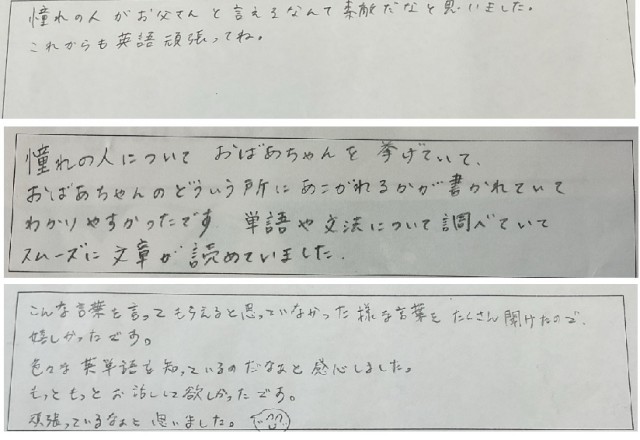 憧れの人がお父さんと言えるなんて素敵だなと思いました。
これからも英語頑張ってね。
憧れの人について おばあちゃんを 挙げていて、
おばあちゃんのどういう所にあこがれるかが書かれていて
わかりやすかったです 単語や文法について調べていて
スムーズに文章が読めていました.
こんな言葉を言ってもらえると思っていなかった様な言葉をたくさん聞けたので、
嬉しかったです。
色々な英単語を知っているのだなぁと感心しました。
もっともっとお話しして欲しかったです。
頑張っているなぁと思いました。